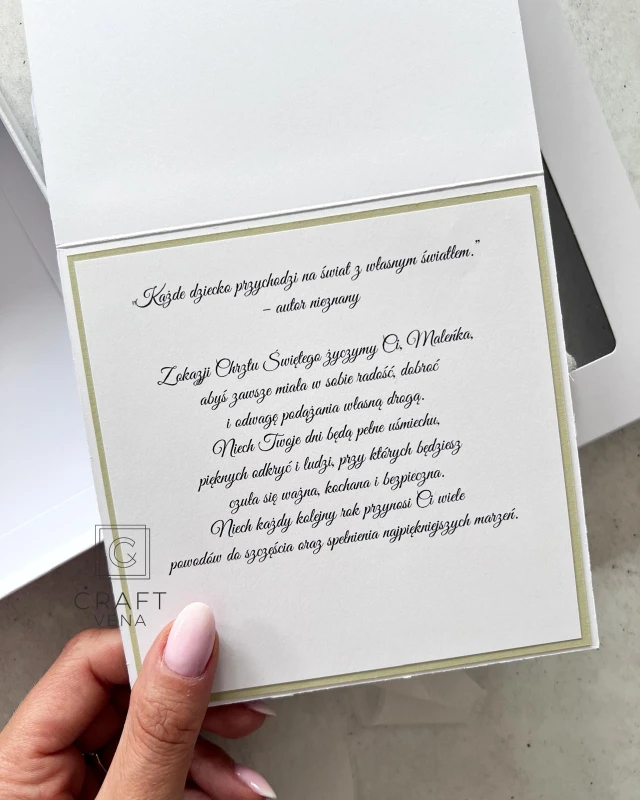 „Każde dziecko przychodzi na świat z własnym światłem.”
– autor nieznany
Z okazji Chrztu Świętego życzymy Ci, Maleńka,
abyś zawsze miała w sobie radość, dobroć
i odwagę podążania własną drogą.
Niech Twoje dni będą pełne uśmiechu,
pięknych odkryć i ludzi, przy których będziesz
czuła się ważna, kochana i bezpieczna.
Niech każdy kolejny rok przynosi Ci wiele
powodów do szczęścia oraz spełnienia najpiękniejszych marzeń.
CRAFT
VENA